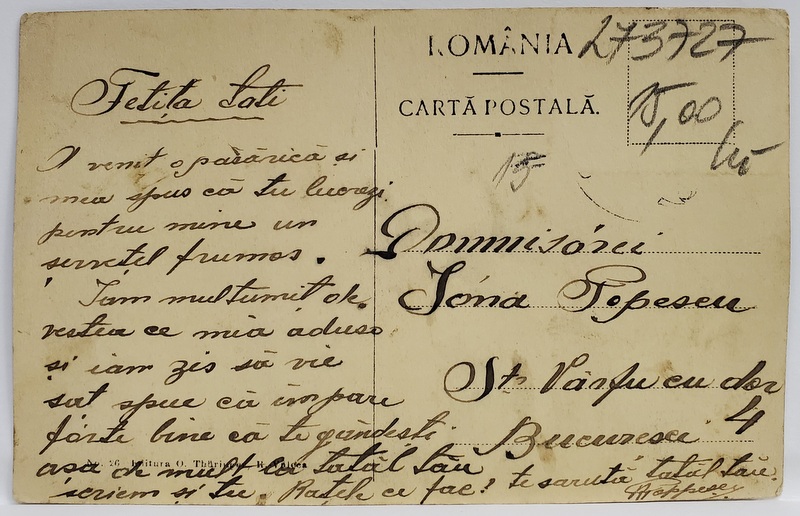 ROMÂNIA
CARTĂ POSTALĂ.
273727
15,00
lei
15
Fetița Tati
A venit o păsărică și
mea spus că tu lucrezi
pentru mine un
servețel frumos.
Iam multumit de
vestea ce mia aduso
și iam zis să vie
sat spue că îmi pare
fórte bine că te gândești
așa de mult la tatăl tău
scriem și tu. Rațele ce fac! te sarută tatăl tău
Domnisórei
Popescu
Str Vârfu cu dor
4
Bucuresci
No. 26 Editura O.